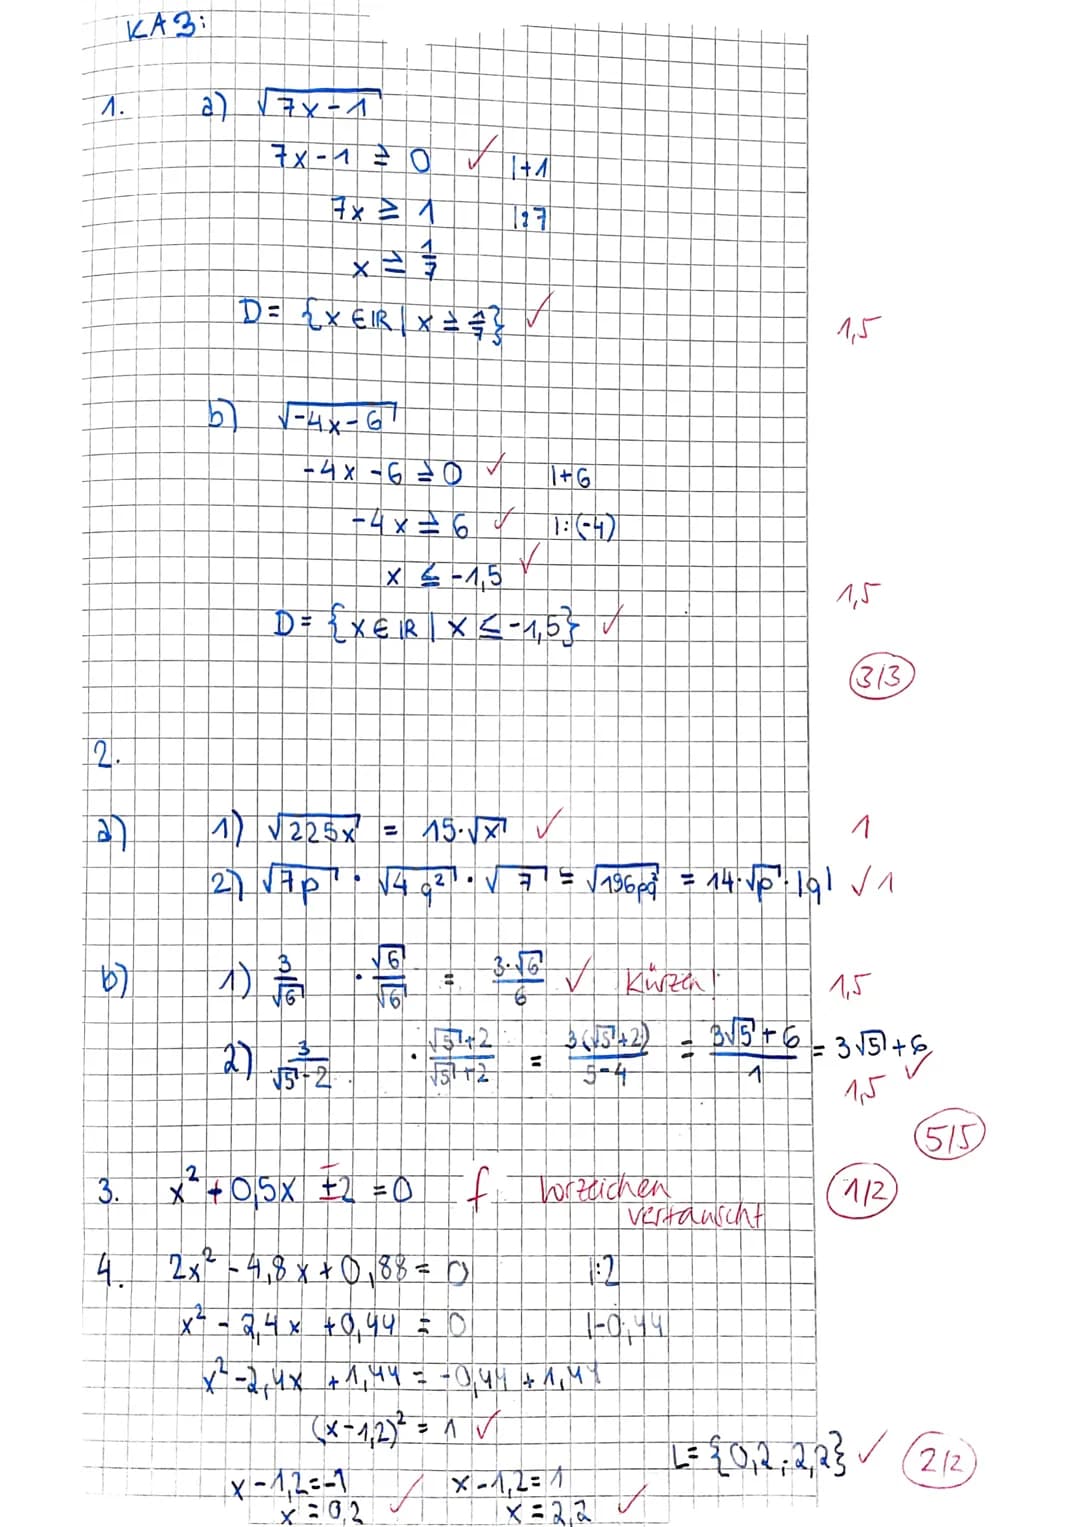 KA3:
1. a) √(7x-1)
7x-1 ≥ 0 ✓ |+1
7x ≥ 1 |:7
x ≥ 1/7
D = {x ∈ ℝ | x ≥ 1/7} ✓ 1,5
b) √(-4x-6)
-4x-6 ≥ 0 ✓ |+6
-4x ≥ 6 ✓ |:(-4)
x ≤ -1,5 ✓
D = {x ∈ ℝ | x ≤ -1,5} ✓ 1,5
3/3
2.
a) 1) √(225x) = 15·√x ✓ 1
2) √(7p) · √(4q²) · √7 = √(196pq²) = 14·√p·|q| ✓ 1
b) 1) 3/√6 · √6/√6 = 3·√6/6 ✓ Kürzen! 1,5
2) 3/(√5-2) · (√5+2)/(√5+2) = 3(√5+2)/(5-4) = (3√5+6)/1 = 3√5+6 ✓
1,5
5/5
3. x² + 0,5x ±2 = 0 f Vorzeichen vertauscht 1/2
4. 2x² - 4,8x + 0,88 = 0 |:2
x² - 2,4x + 0,44 = 0 |-0,44
x² - 2,4x + 1,44 = -0,44 + 1,44
(x-1,2)² = 1 ✓
L = {0,2; 2,2} ✓ 2/2
x-1,2=-1 x-1,2=1
x=0,2 ✓ x=2,2 ✓